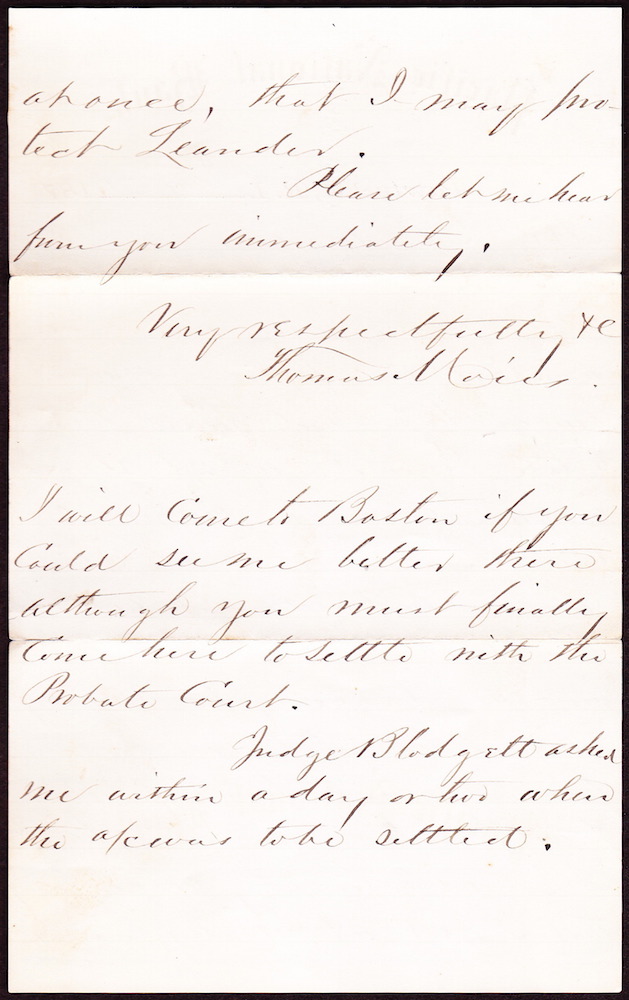 at once, that I may pro-
tect Leander.
Please let me hear
from you immediately.
Very respectfully &c
Thomas
I will come to Boston if you
Could see me better there
although you must finally
Come here to settle with the
Probate Court.
Judge Blodgett asked
me within a day or two when
the a/c was to be settled.